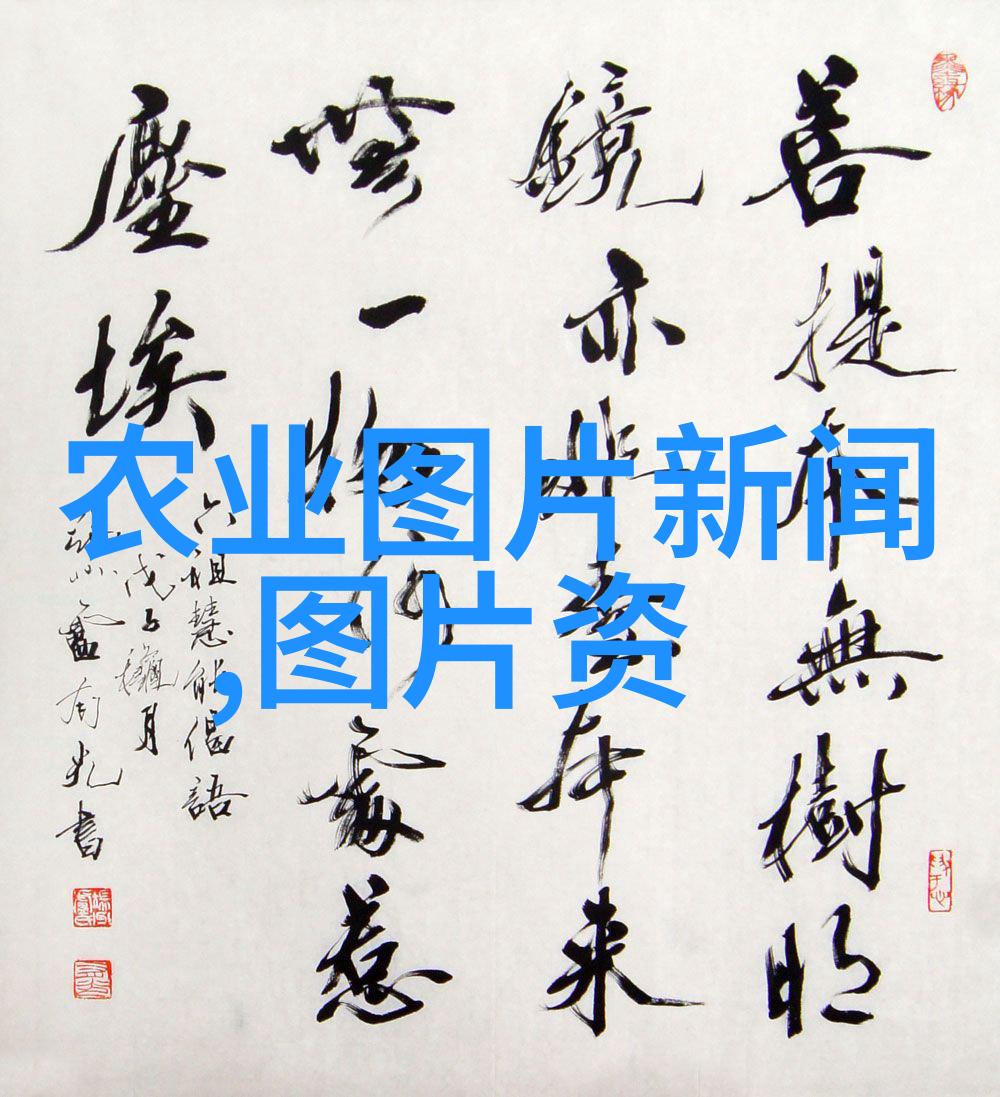 菩提本無樹明
鏡亦非臺本来
無一物何處惹
塵埃
六祖慧能偈語
戊子穐月
盧有光書
农业图片新闻
,图片资